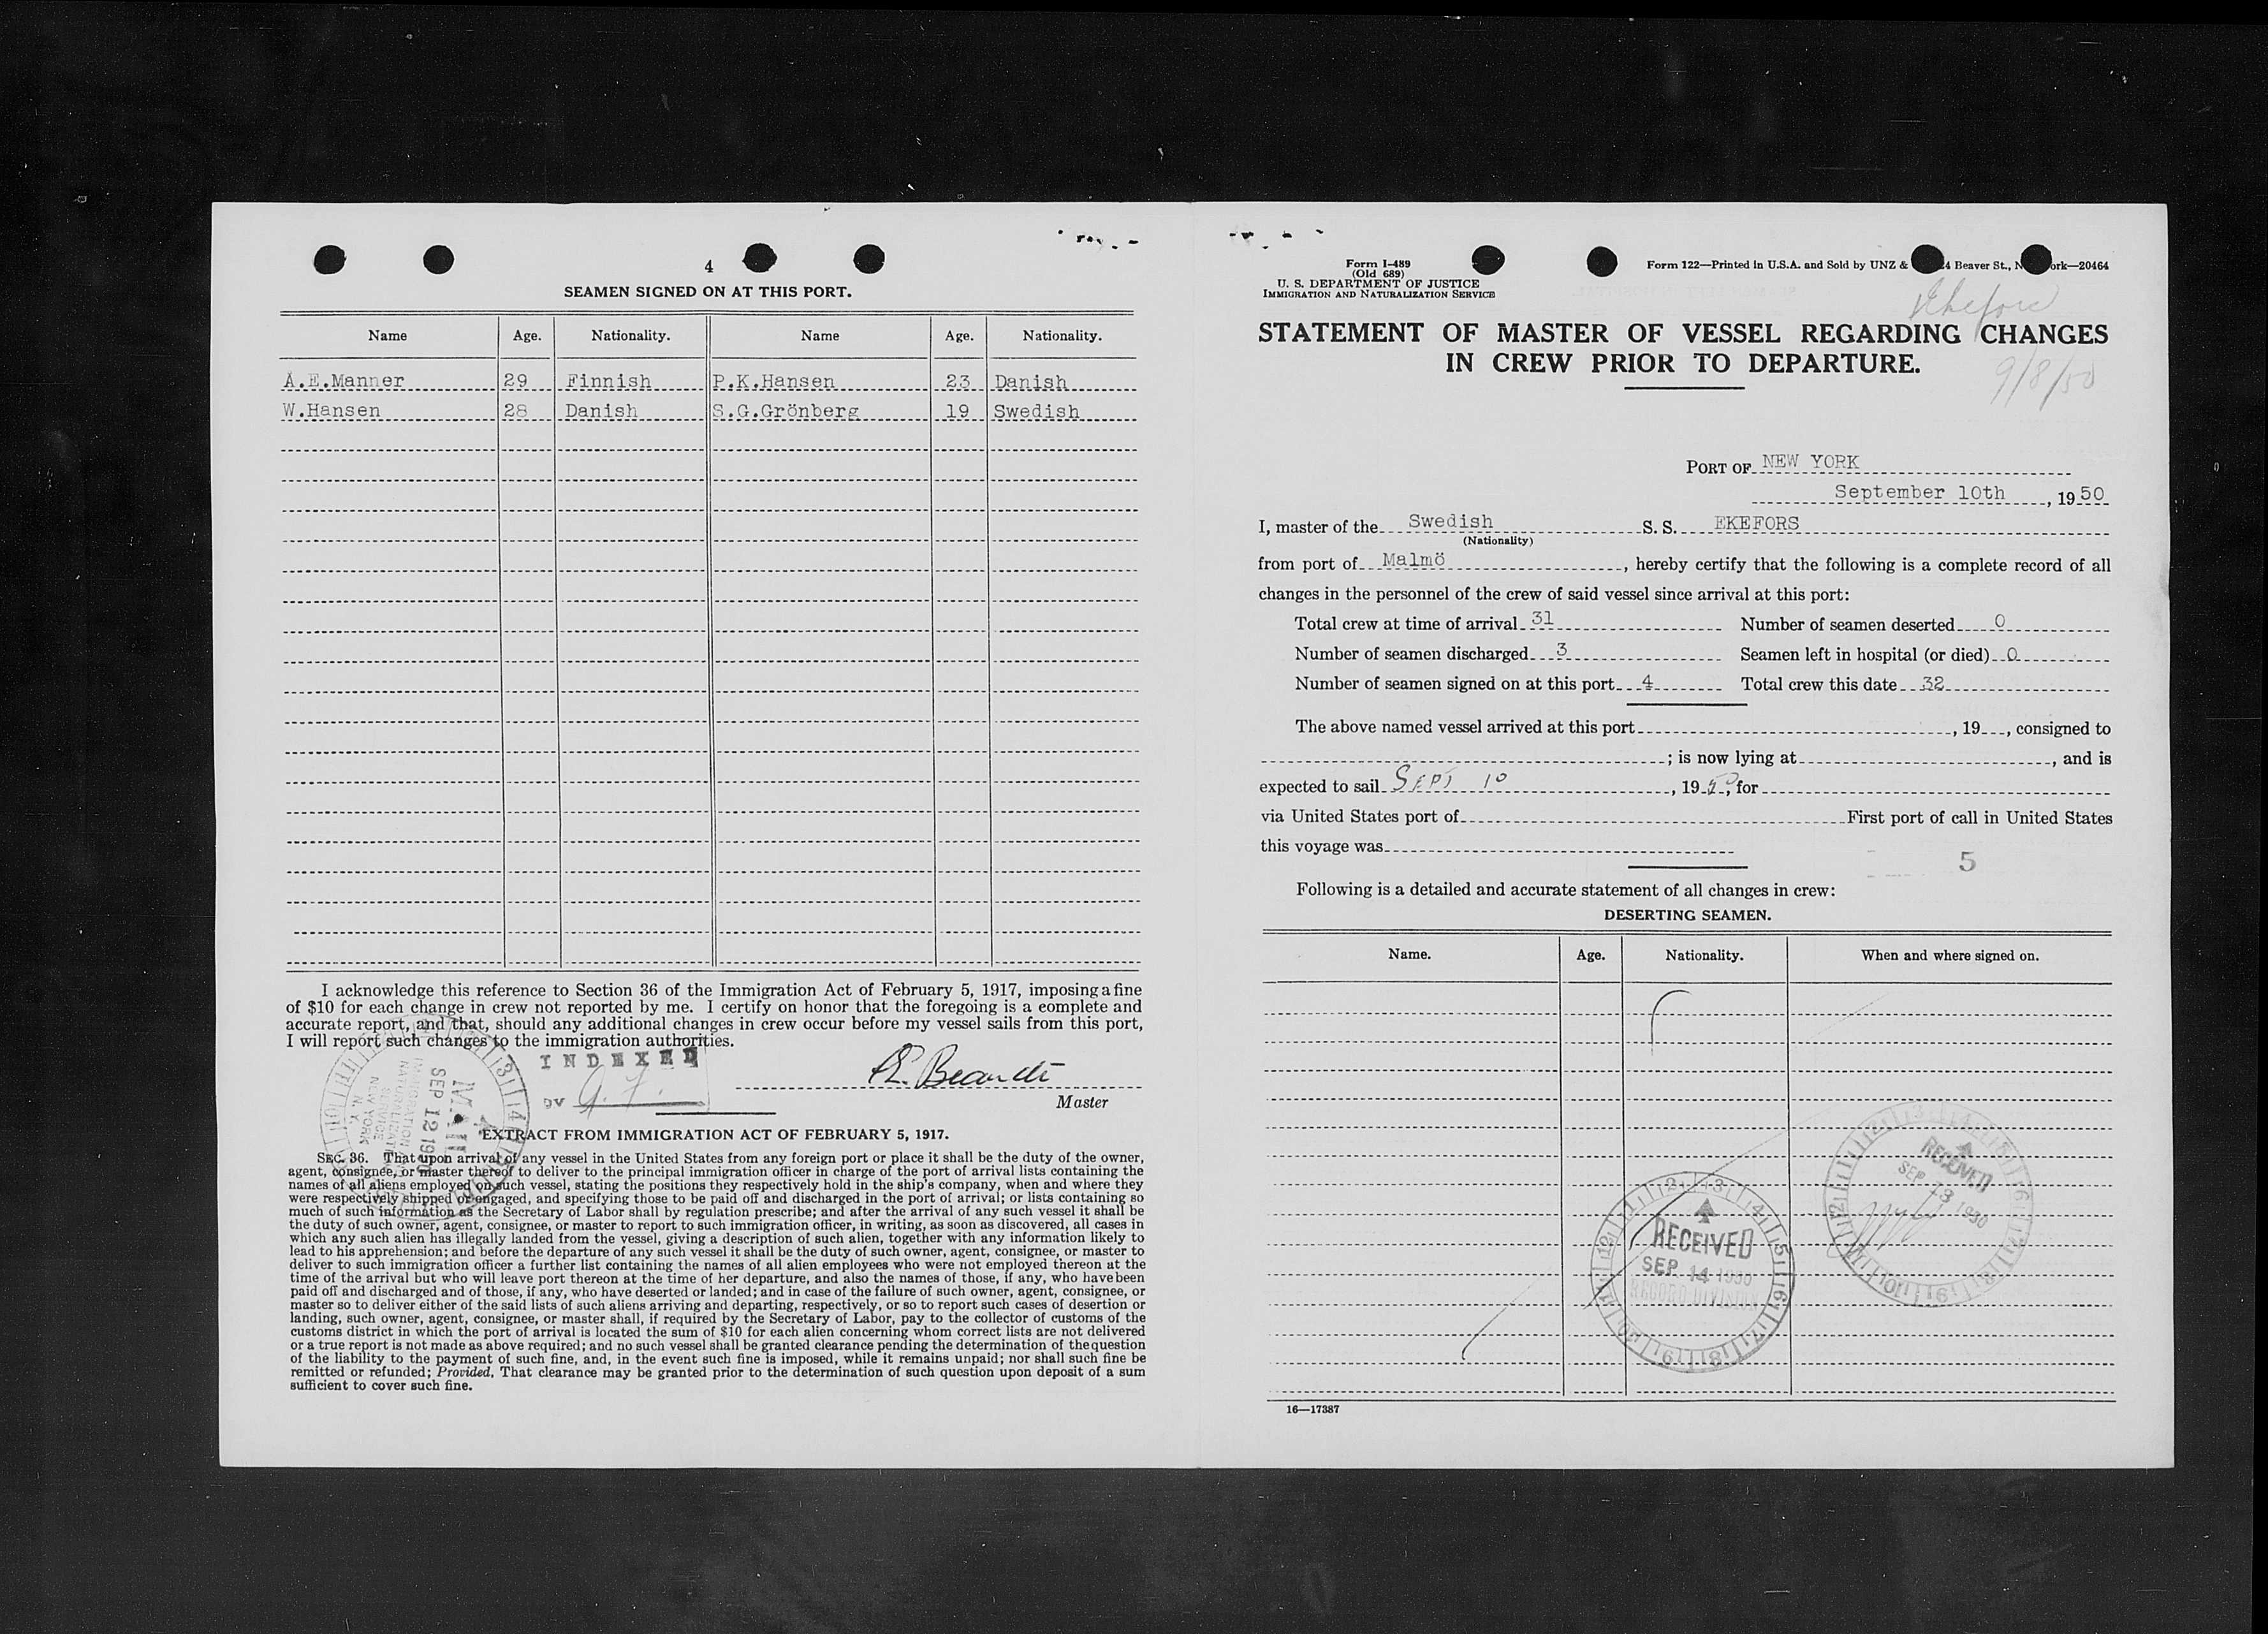 4
SEAMEN SIGNED ON AT THIS PORT.
Name Age. Nationality. Name Age. Nationality.
A.E.Manner 29 Finnish P.K.Hansen 23 Danish
W.Hansen 28 Danish S.G.Grönberg 19 Swedish
I acknowledge this reference to Section 36 of the Immigration Act of February 5, 1917, imposing a fine
of $10 for each change in crew not reported by me. I certify on honor that the foregoing is a complete and
accurate report, and that, should any additional changes in crew occur before my vessel sails from this port,
I will report such changes to the immigration authorities.
INDEXED
BY
Master
MAIL
SEP 12 1950
IMMIGRATION
NATURALIZATION
SERVICE
NEW YORK
N. Y.
EXTRACT FROM IMMIGRATION ACT OF FEBRUARY 5, 1917.
SEC. 36. That upon arrival of any vessel in the United States from any foreign port or place it shall be the duty of the owner,
agent, consignee, or master thereof to deliver to the principal immigration officer in charge of the port of arrival lists containing the
names of all aliens employed on such vessel, stating the positions they respectively hold in the ship's company, when and where they
were respectively shipped or engaged, and specifying those to be paid off and discharged in the port of arrival; or lists containing so
much of such information as the Secretary of Labor shall by regulation prescribe; and after the arrival of any such vessel it shall be
the duty of such owner, agent, consignee, or master to report to such immigration officer, in writing, as soon as discovered, all cases in
which any such alien has illegally landed from the vessel, giving a description of such alien, together with any information likely to
lead to his apprehension; and before the departure of any such vessel it shall be the duty of such owner, agent, consignee, or master to
deliver to such immigration officer a further list containing the names of all alien employees who were not employed thereon at the
time of the arrival but who will leave port thereon at the time of her departure, and also the names of those, if any, who have been
paid off and discharged and of those, if any, who have deserted or landed; and in case of the failure of such owner, agent, consignee, or
master so to deliver either of the said lists of such aliens arriving and departing, respectively, or so to report such cases of desertion or
landing, such owner, agent, consignee, or master shall, if required by the Secretary of Labor, pay to the collector of customs of the
customs district in which the port of arrival is located the sum of $10 for each alien concerning whom correct lists are not delivered
or a true report is not made as above required; and no such vessel shall be granted clearance pending the determination of the question
of the liability to the payment of such fine, and, in the event such fine is imposed, while it remains unpaid; nor shall such fine be
remitted or refunded; Provided, That clearance may be granted prior to the determination of such question upon deposit of a sum
sufficient to cover such fine.
Form I-489
(Old 689)
U. S. DEPARTMENT OF JUSTICE
IMMIGRATION AND NATURALIZATION SERVICE
Form 122—Printed in U.S.A. and Sold by UNZ & 4 Beaver St., N ork—20464
STATEMENT OF MASTER OF VESSEL REGARDING CHANGES
IN CREW PRIOR TO DEPARTURE.
9/8/50
PORT OF NEW YORK
September 10th, 1950
I, master of the Swedish S. S. EKEFORS
(Nationality)
from port of Malmö, hereby certify that the following is a complete record of all
changes in the personnel of the crew of said vessel since arrival at this port:
Total crew at time of arrival 31 Number of seamen deserted 0
Number of seamen discharged 3 Seamen left in hospital (or died) 0
Number of seamen signed on at this port 4 Total crew this date 32
The above named vessel arrived at this port , 19 , consigned to
; is now lying at , and is
expected to sail SEPT 10, 1950, for
via United States port of First port of call in United States
this voyage was
5
Following is a detailed and accurate statement of all changes in crew:
DESERTING SEAMEN.
Name. Age. Nationality. When and where signed on.
RECEIVED
SEP 13 1950
RECEIVED
SEP 14 1950
RECORD DIVISION
16—17387